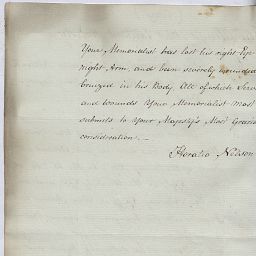 Your Memorialist has lost his right Eye
right Arm, and been severely wounded
bruized in his Body. All of which Serv
and wounds Your Memorialist most
submits to Your Majesty's Most Gracio
consideration.—
Horatio Nelson